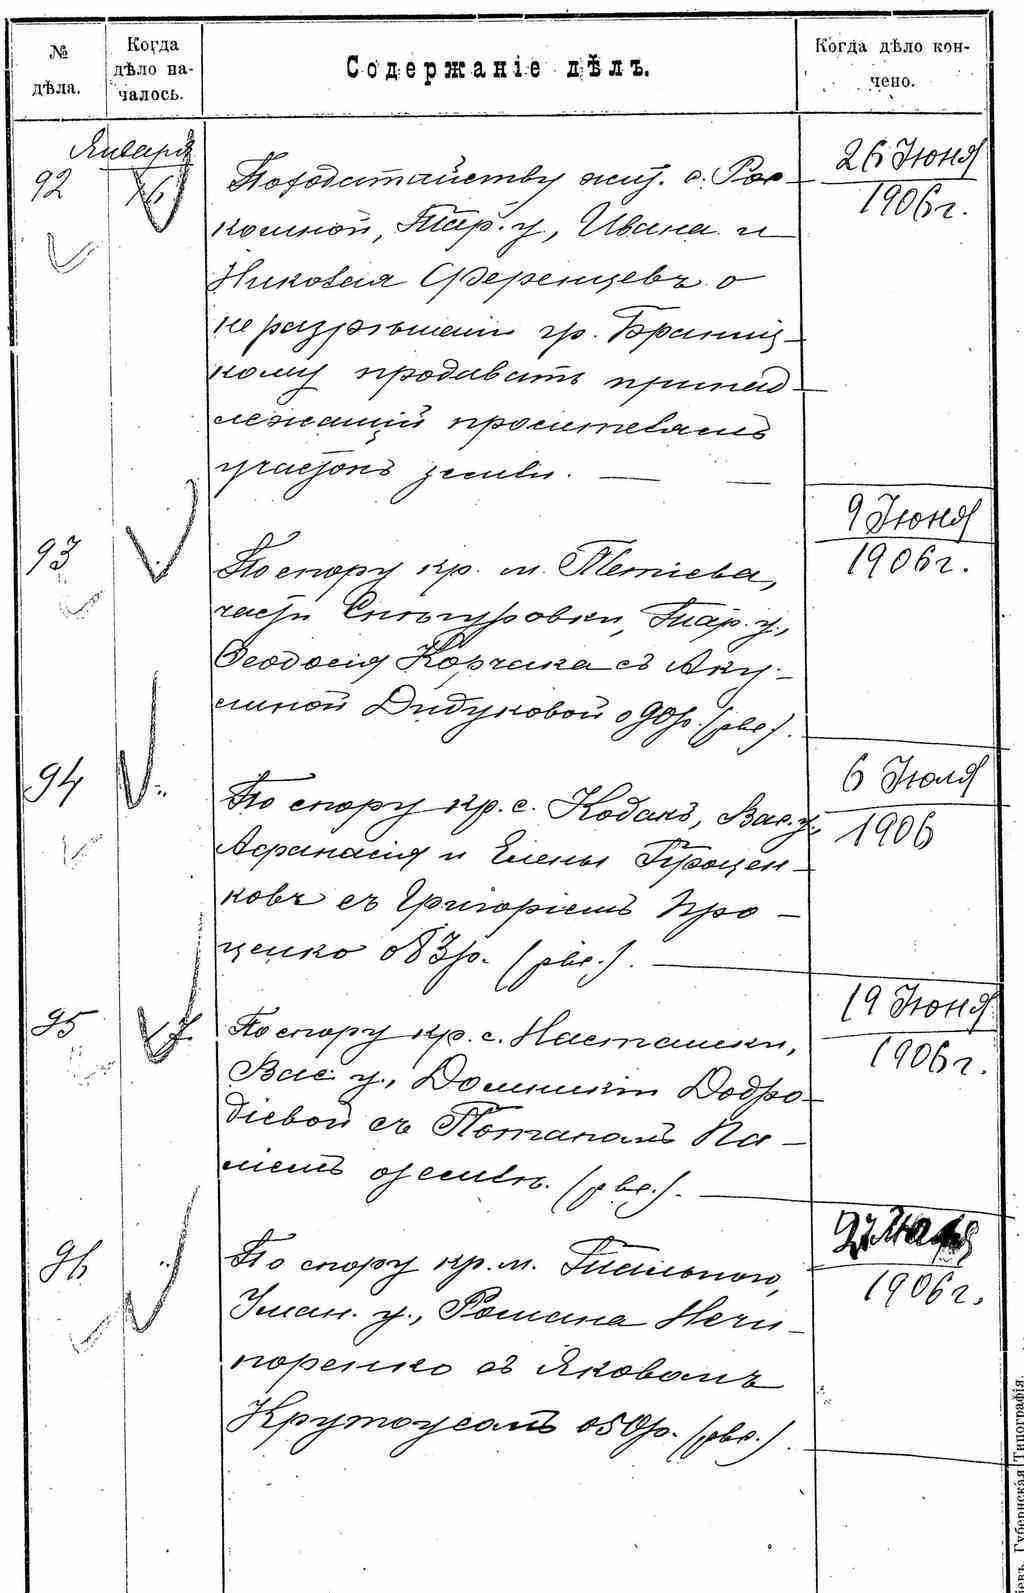 № дѣла.
Когда дѣло началось.
Содержаніе дѣлъ.
Когда дѣло кончено.
Января
92
16
По ходатайству жит. с. Рос-
кошной, Тар. у, Ивана и
Николая Ференцевъ о
неразрѣшеніи гр. Браниц-
кому продавать принад-
лежащій просителямъ
участокъ земли. —
26 Іюня
1906 г.
93
По спору кр. м. Тетіева,
части Снѣгуровки, Тар. у.,
Ѳеодосія Корчака съ Аку-
линой Дидуковой о 90 р. (рве.).
9 Іюня
1906 г.
94
По спору кр. с. Кодакъ, Вас. у.,
Афанасія и Елены Процен-
ковъ съ Григоріемъ Про-
ценко о 83 р. (рве.).
6 Іюля
1906
95
17
По спору кр. с. Насташки,
Вас. у., Домникіи Добро-
діевой съ Потапомъ Па-
ліемъ о землѣ. (рве.).
19 Іюня
1906 г.
96
По спору кр. м. Тального,
Уман. у., Романа Нечи-
поренко съ Яковомъ
Крутоусомъ о 50 р. (рве.).
1906 г.
Губернская Типографія.